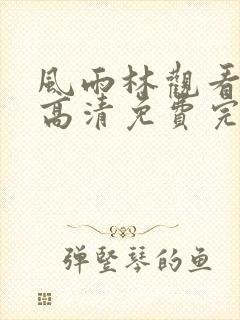 風雨林觀看
高清免費完
弹竖琴的鱼